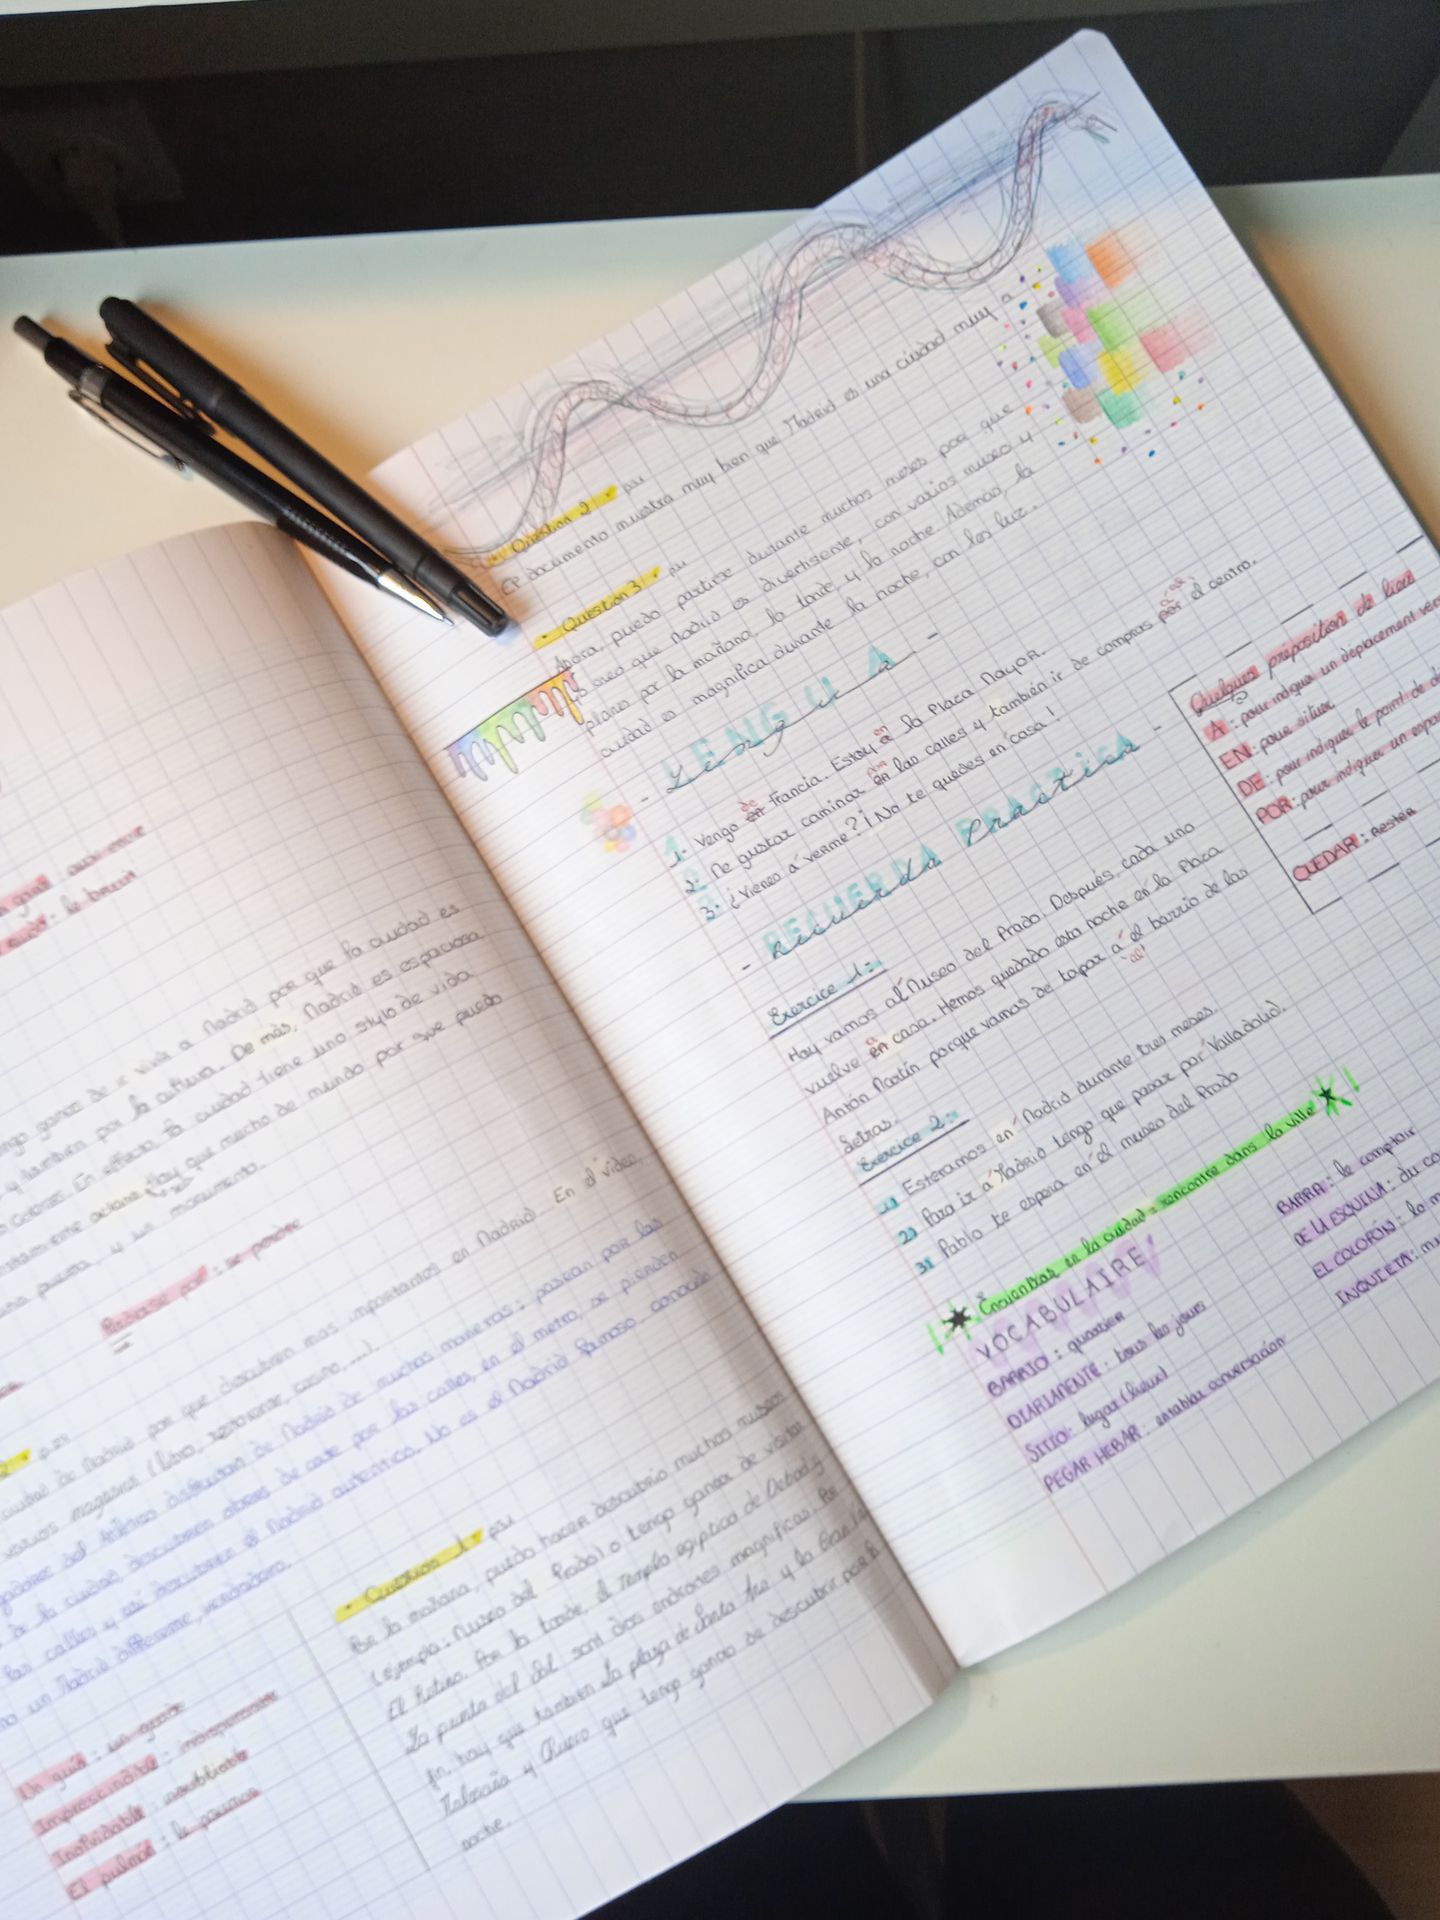 gustar aux gens
ruido : le bruit
tengo ganas de ir vivir a Madrid por que la ciudad es
y también por la cultura. De más, Madrid es espaciosa
colores. En effecto, la ciudad tiene uno stylo de vida
hay que mucho de mundo por que puedo
y un monumento.
Pederse por : se perdre
ciudad de Madrid por que descubren mas importantes en Madrid. En el video,
varios magasins (libro, restorante, casino, ...).
del Atlético disfrutan de Madrid de muchas maneras : pasean por las
de la ciudad, descubren obras de arte por las calles, en el metro, se pierden
las calles y así descubren el Madrid autentico. No es el Madrid famoso conocido
un Madrid differente, verdadero.
Un guía : un guide
Imprescindible : indispensable
Inolvidable : inoubliable
El pulmón : le poumon
• Question 1 • p51
Por la mañana, puedo hacer descubrio muchos museos
(ejemplo : Museo del Prado) o tengo ganas de visitar
El Retiro. Por la tarde, el Templo egiptico de Debod y
La puerta del Sol sont dos endroies magnificas. Por
fin, hay que también la plaza de Santa Ana y la Gran Vía
Malasaña y Chueca que tengo ganas de descubrir por la
noche.
• Question 2 • p51
El documento muestra muy bien que Madrid es una ciudad muy
• Question 3 • p51
Ahora, puedo partirse durante muchos meses por que
yo creo que Madrid es divertisente, con varios museo y
planes por la mañana, la tarde y la noche. Además, la
ciudad es magnifica durante la noche, con las luz.
- LENGUA -
Lengua
1- Vengo en de Francia. Estoy a en la Plaza Mayor.
2- Me gustar caminar en por las calles y también ir de compras por el centro.
3- ¿Vienes a verme? ¡No te quedes en casa!
Quelques preposition de lieu
A : pour indiquer un déplacement vers
EN : pour situer
DE : pour indiquer le point de
POR : pour indiquer un
QUEDAR : rester
- RECUERDA PRACTICA -
Recuerda Practica
Exercice 1 :
Hoy vamos al Museo del Prado. Después, cada uno
vuelve en a casa. Hemos quedado esta noche en la Plaza
Antón Martín porque vamos de tapas a el al barrio de las
letras.
Exercice 2 :
1) Esteramos en Madrid durante tres meses.
2) Para ir a Madrid tengo que pasar por Valladolid.
3) Pablo te espera en el museo del Prado
Encuentros en la ciudad = rencontre dans la ville
VOCABULAIRE
BARRIO : quartier
DIARIAMENTE : tous les jours
SITIO : lugar (lieux)
PEGAR HEBAR : entablar conversación
BARRA : le comptoir
DE LA ESQUINA : du
EL COLOFÓN :
INQUIETA :